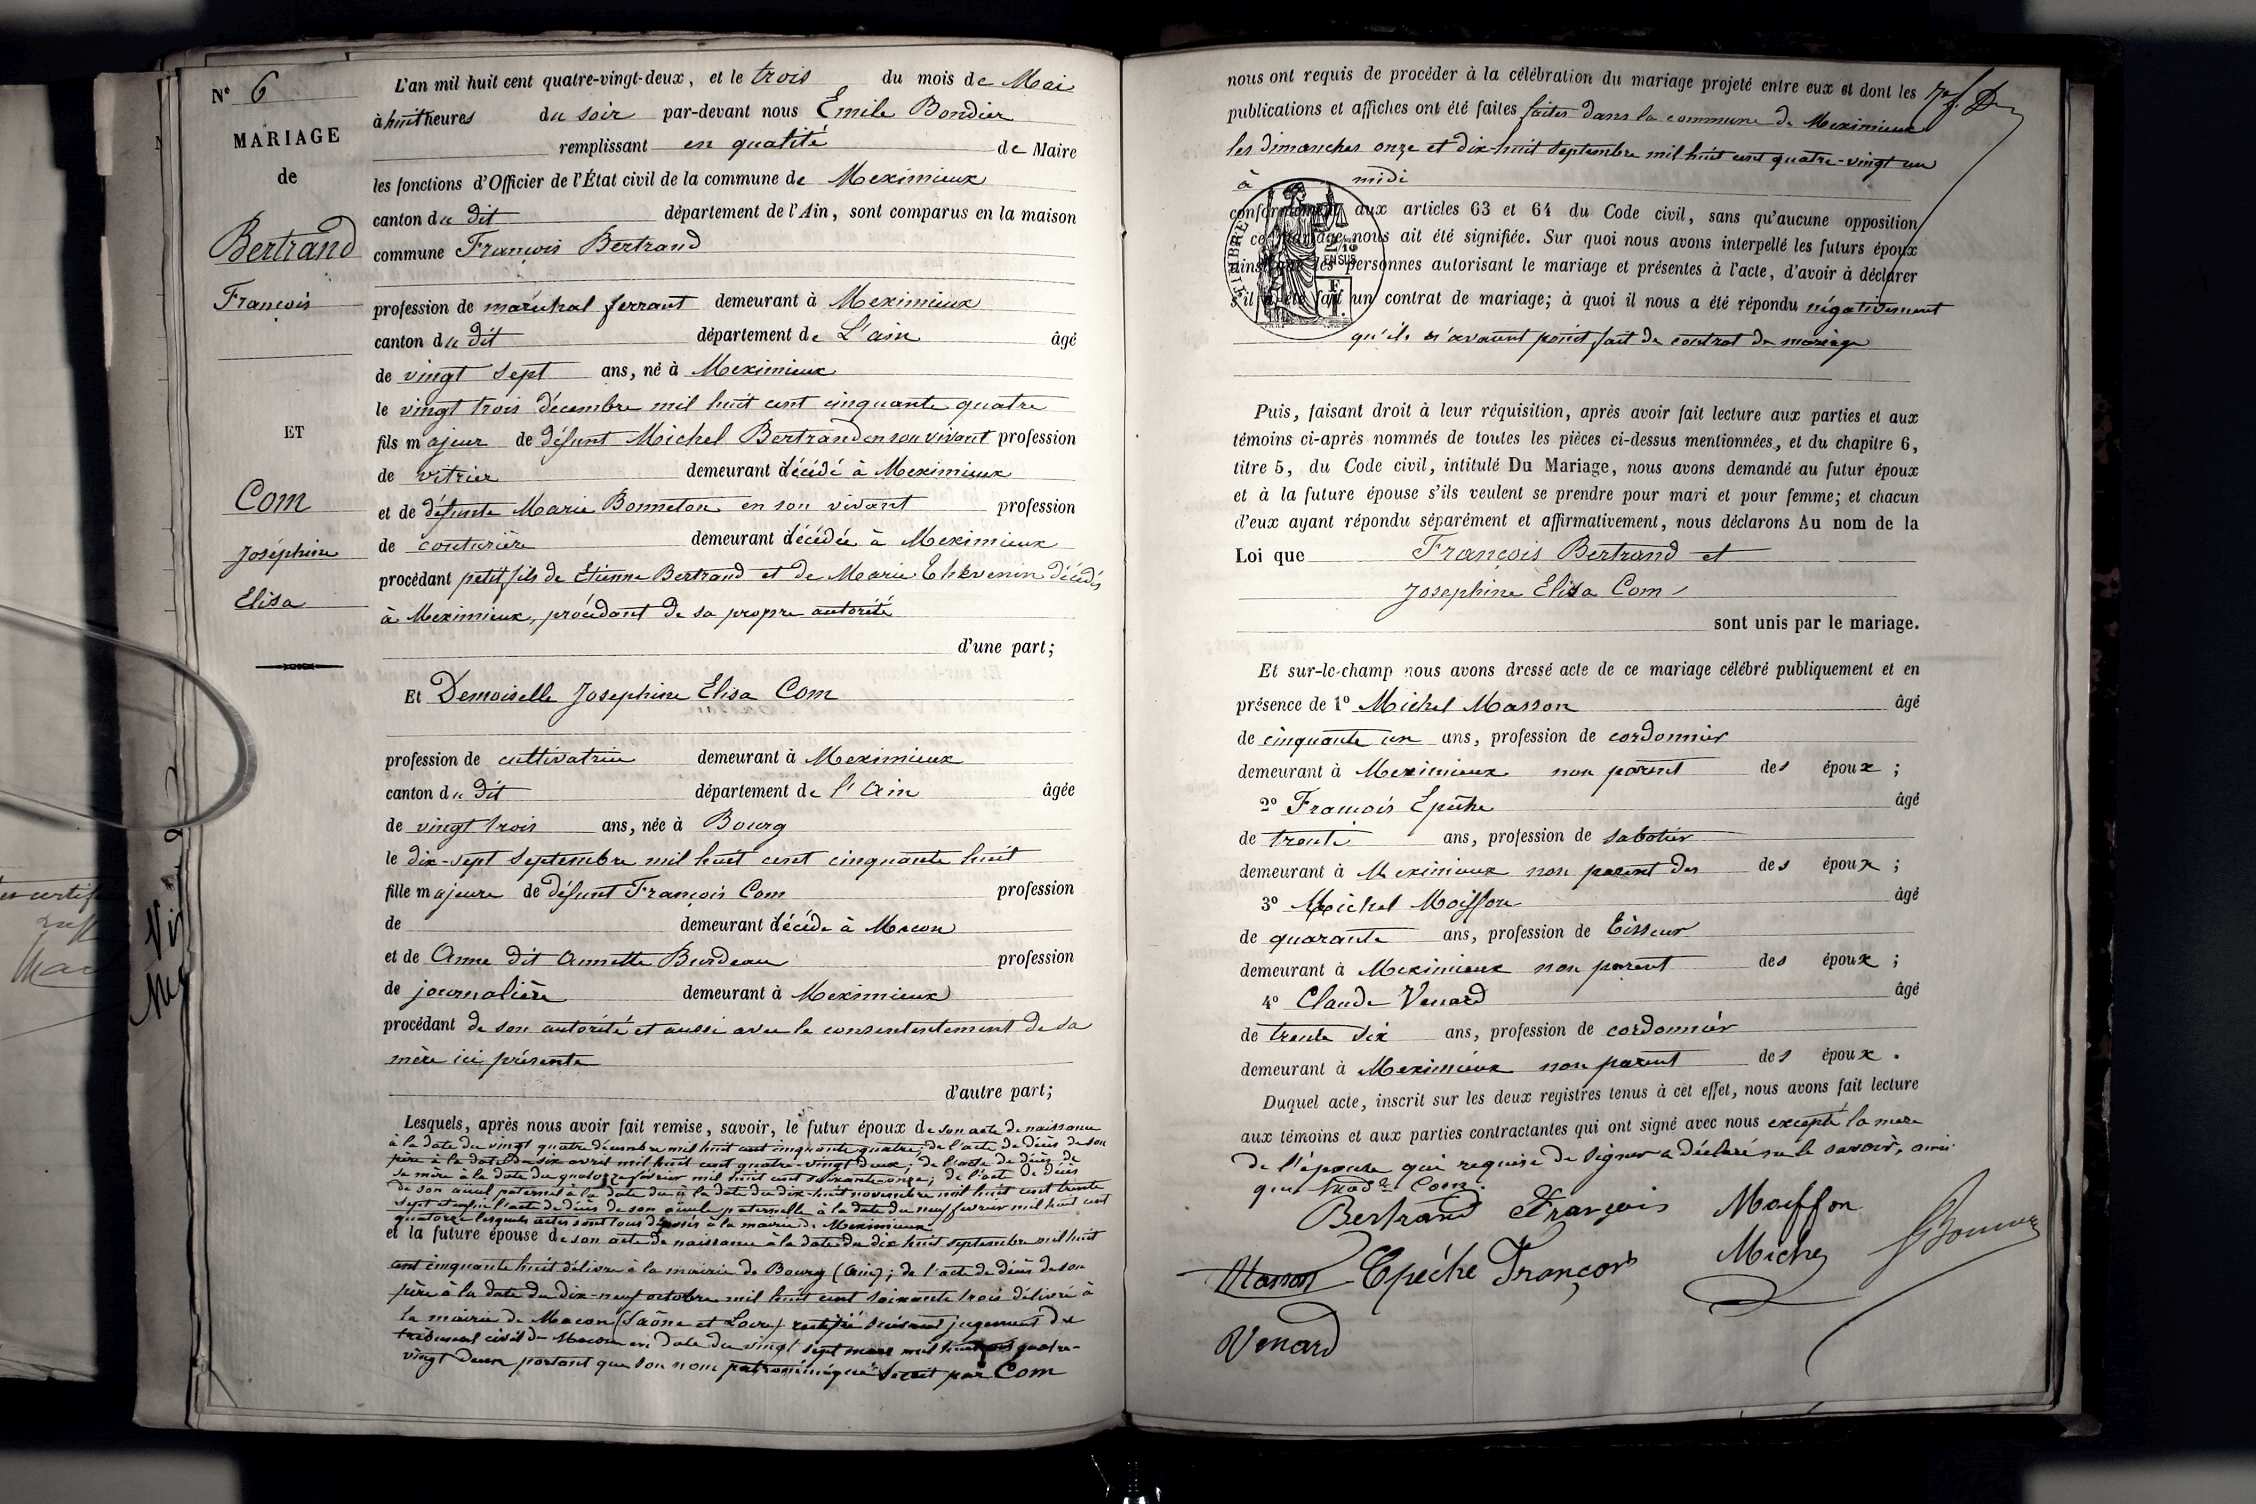 N° 6
MARIAGE
de
Bertrand
François
ET
Com
Joséphine
Elisa
L'an mil huit cent quatre-vingt-deux, et le trois du mois de Mai
à huit heures du soir par-devant nous Emile Bondier
remplissant en qualité de Maire
les fonctions d'Officier de l'État civil de la commune de Meximieux
canton du dit département de l'Ain, sont comparus en la maison
commune François Bertrand
profession de maréchal ferrant demeurant à Meximieux
canton du dit département de L'ain âgé
de vingt sept ans, né à Meximieux
le vingt trois décembre mil huit cent cinquante quatre
fils majeur de défunt Michel Bertrand en son vivant profession
de vitrier demeurant décédé à Meximieux
et de défunte Marie Bonneton en son vivant profession
de couturière demeurant décédée à Meximieux
procédant petit fils de Etienne Bertrand et de Marie Thévenin décédés
à Meximieux, procédant de sa propre autorité
d'une part;
Et Demoiselle Josephine Elisa Com
profession de cultivatrice demeurant à Meximieux
canton du dit département de l'Ain âgée
de vingt trois ans, née à Bourg
le dix-sept septembre mil huit cent cinquante huit
fille majeure de défunt François Com profession
de demeurant décédé à Macon
et de Anne dit Annette Burdeau profession
de journalière demeurant à Meximieux
procédant de son autorité et aussi avec le consentement de sa
mère ici présente
d'autre part;
Lesquels, après nous avoir fait remise, savoir, le futur époux de son acte de naissance
à la date du vingt quatre décembre mil huit cent cinquante quatre; de l'acte de décès de son
père à la date du six avril mil huit cent quatre-vingt deux; de l'acte de décès de
sa mère à la date du quatorze février mil huit cent soixante-onze; de l'acte de décès
de son aieul paternel à la date du à la date du dix-huit novembre mil huit cent trente
sept et enfin l'acte de décès de son aieule paternelle à la date du neuf fevrier mil huit cent
quatorze lesquels actes sont tous déposés à la mairie de Meximieux
et la future épouse de son acte de naissance à la date du dix huit septembre mil huit
cent cinquante huit délivré à la mairie de Bourg (Ain); de l'acte de décès de son
père à la date du dix-neuf octobre mil huit cent soixante trois délivré à
la mairie de Macon (Saône et Loire) rectifié suivant jugement du
tribunal civil de Macon en date du vingt sept mars mil huit cent quatre-
vingt deux portant que son nom patronimique s'écrit par Com
nous ont requis de procéder à la célébration du mariage projeté entre eux et dont les
publications et affiches ont été faites faites dans la commune de Meximieux
les dimanches onze et dix-huit septembre mil huit cent quatre-vingt un
à midi
conformément aux articles 63 et 64 du Code civil, sans qu'aucune opposition
à ce mariage nous ait été signifiée. Sur quoi nous avons interpellé les futurs époux
ainsi que les personnes autorisant le mariage et présentes à l'acte, d'avoir à déclarer
s'il a été fait un contrat de mariage; à quoi il nous a été répondu négativement
qu'ils n'avaient point fait de contrat de mariage
Puis, faisant droit à leur réquisition, après avoir fait lecture aux parties et aux
témoins ci-après nommés de toutes les pièces ci-dessus mentionnées, et du chapitre 6,
titre 5, du Code civil, intitulé Du Mariage, nous avons demandé au futur époux
et à la future épouse s'ils veulent se prendre pour mari et pour femme; et chacun
d'eux ayant répondu séparément et affirmativement, nous déclarons Au nom de la
Loi que François Bertrand et
Josephine Elisa Com
sont unis par le mariage.
Et sur-le-champ nous avons dressé acte de ce mariage célébré publiquement et en
présence de 1° Michel Masson âgé
de cinquante un ans, profession de cordonnier
demeurant à Meximieux non parent des époux;
2° François Epêche âgé
de trente ans, profession de sabotier
demeurant à Meximieux non parent des des époux;
3° Michel Moiffon âgé
de quarante ans, profession de Tisseur
demeurant à Meximieux non parent des époux;
4° Claude Venard âgé
de trente six ans, profession de cordonnier
demeurant à Meximieux non parent des époux.
Duquel acte, inscrit sur les deux registres tenus à cet effet, nous avons fait lecture
aux témoins et aux parties contractantes qui ont signé avec nous excepté la mère
de l'épouse qui requise de signer a déclaré ne le savoir, ainsi
que Mad.lle Com.
Bertrand François Moiffon
Masson Epéche François Michel
Venard